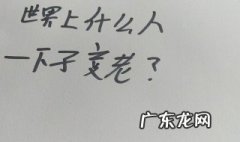 世界上什么人
一下子变老？
广东龙网